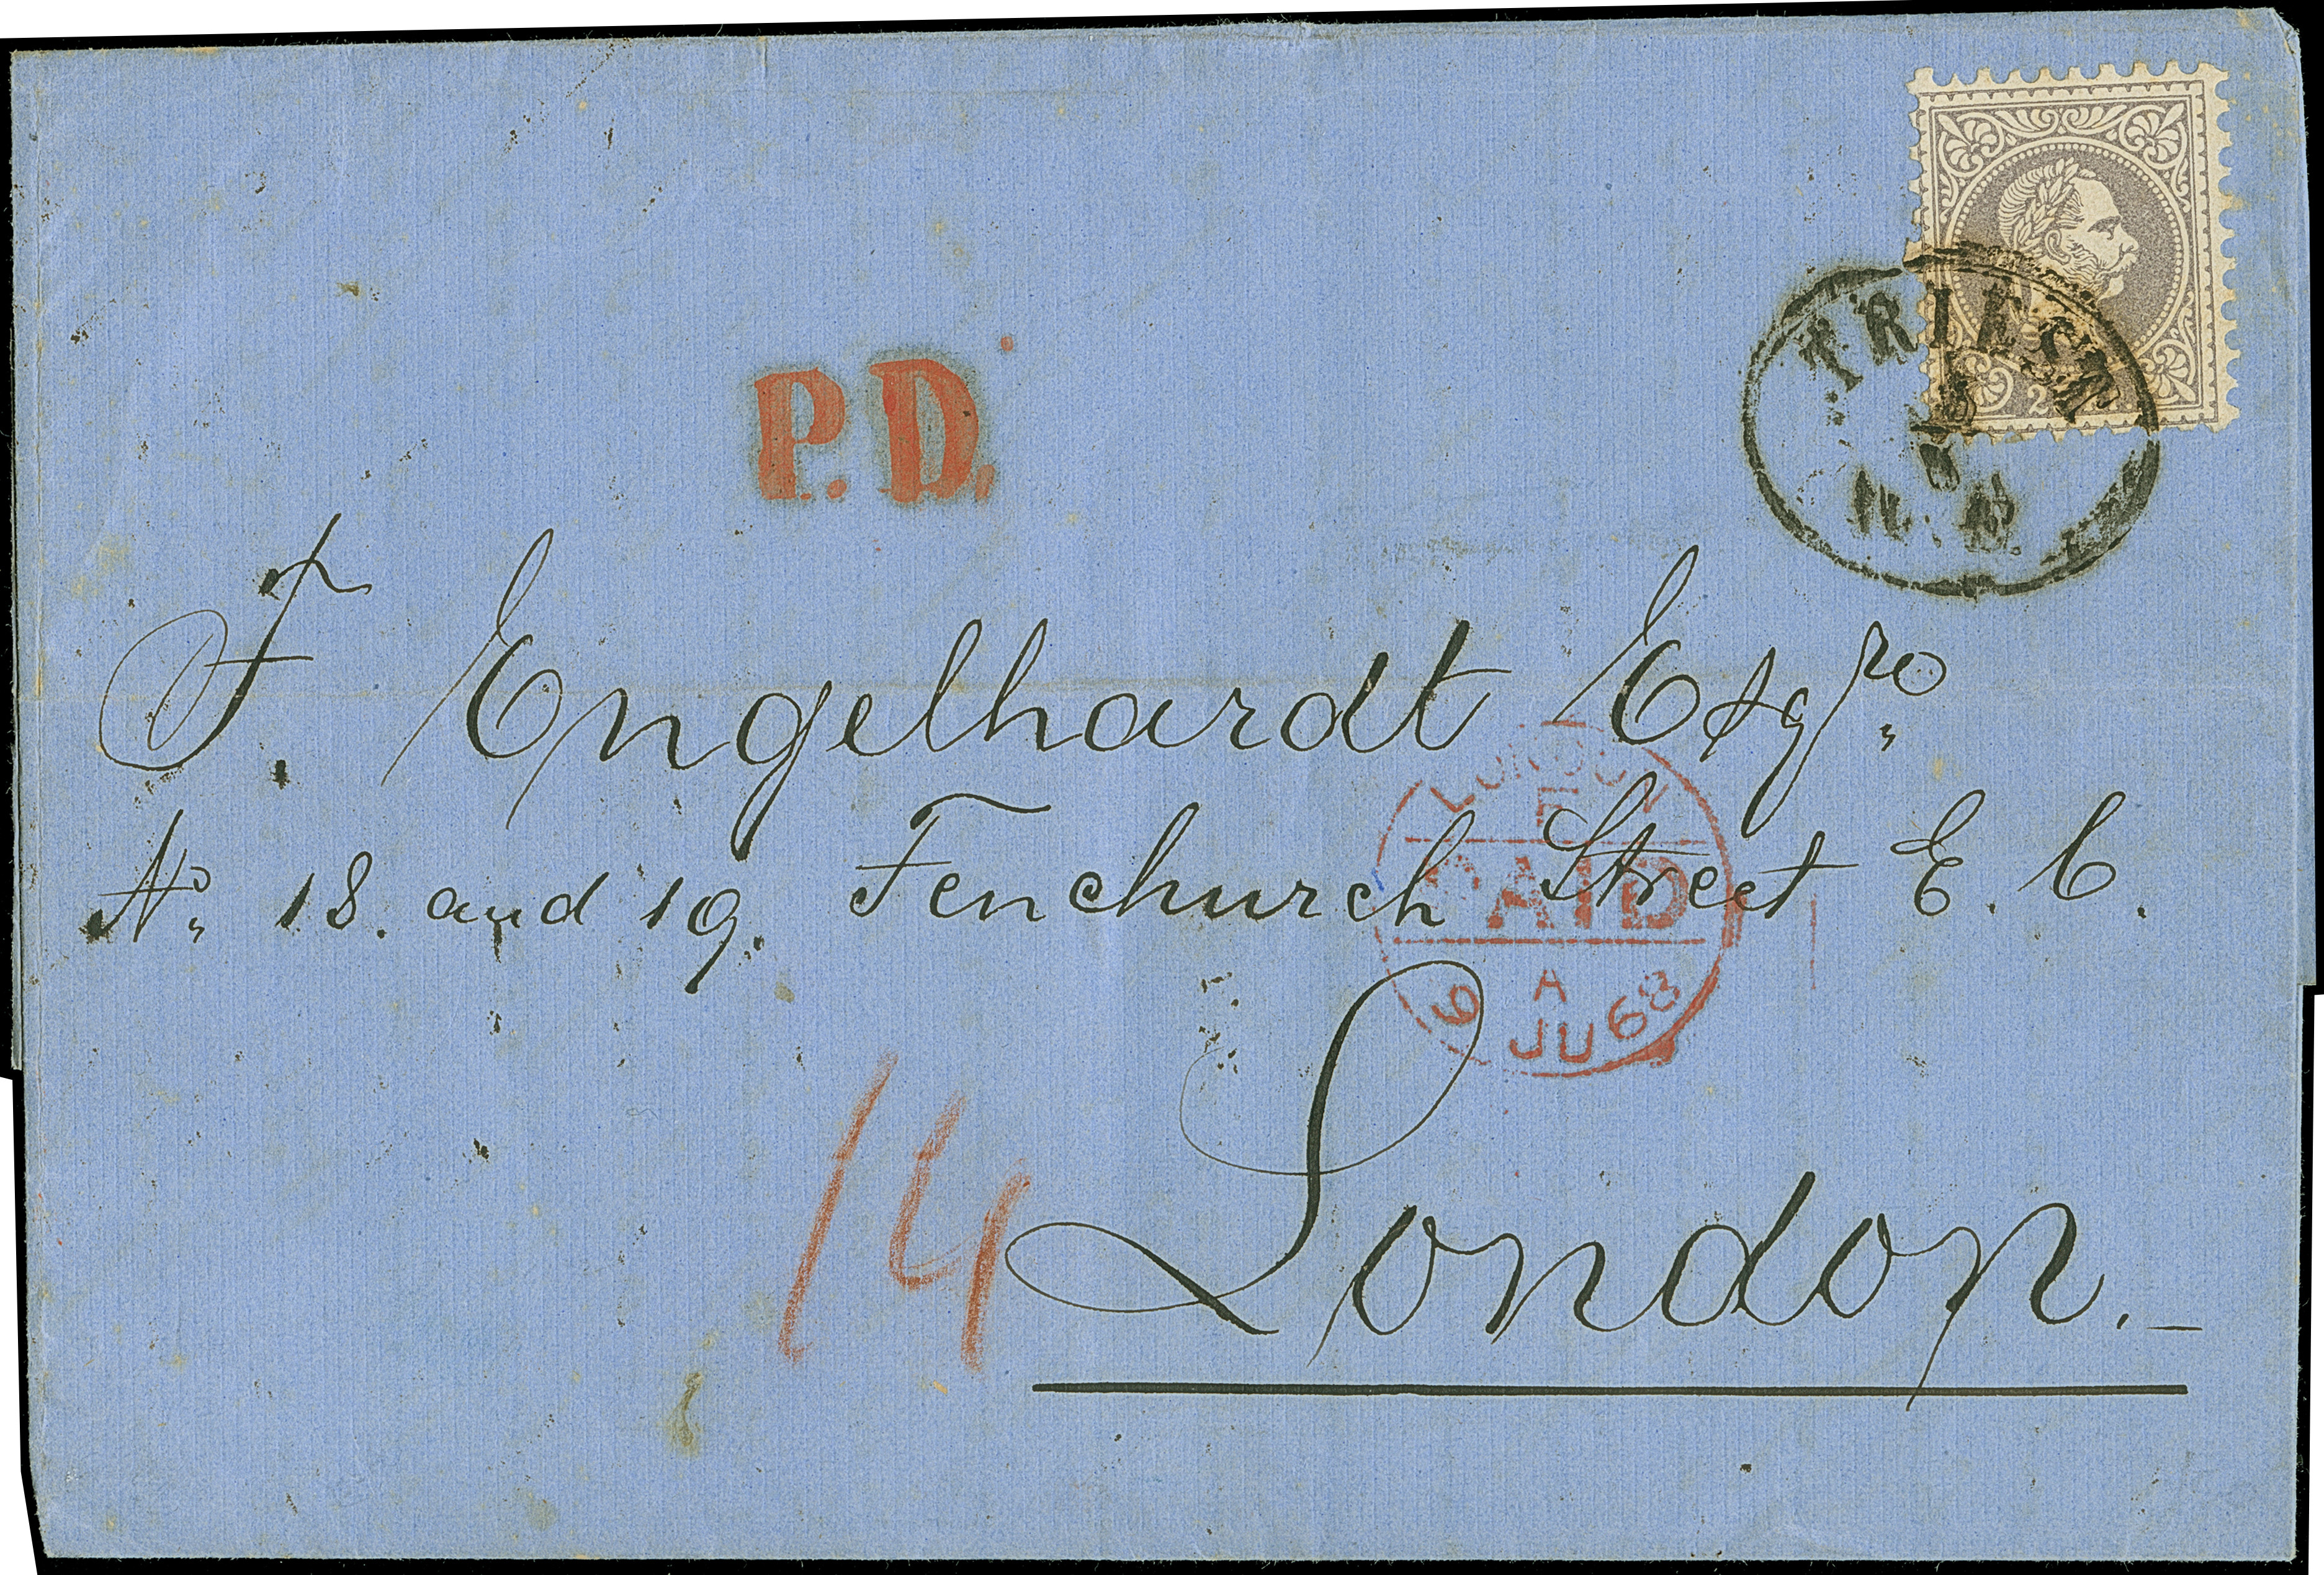 TRIEST
P.D.
F. Engelhardt Esqre
LONDON
F
PAID
A
9 JU 68
No 18. and 19. Fenchurch Street E. C.
London.
14